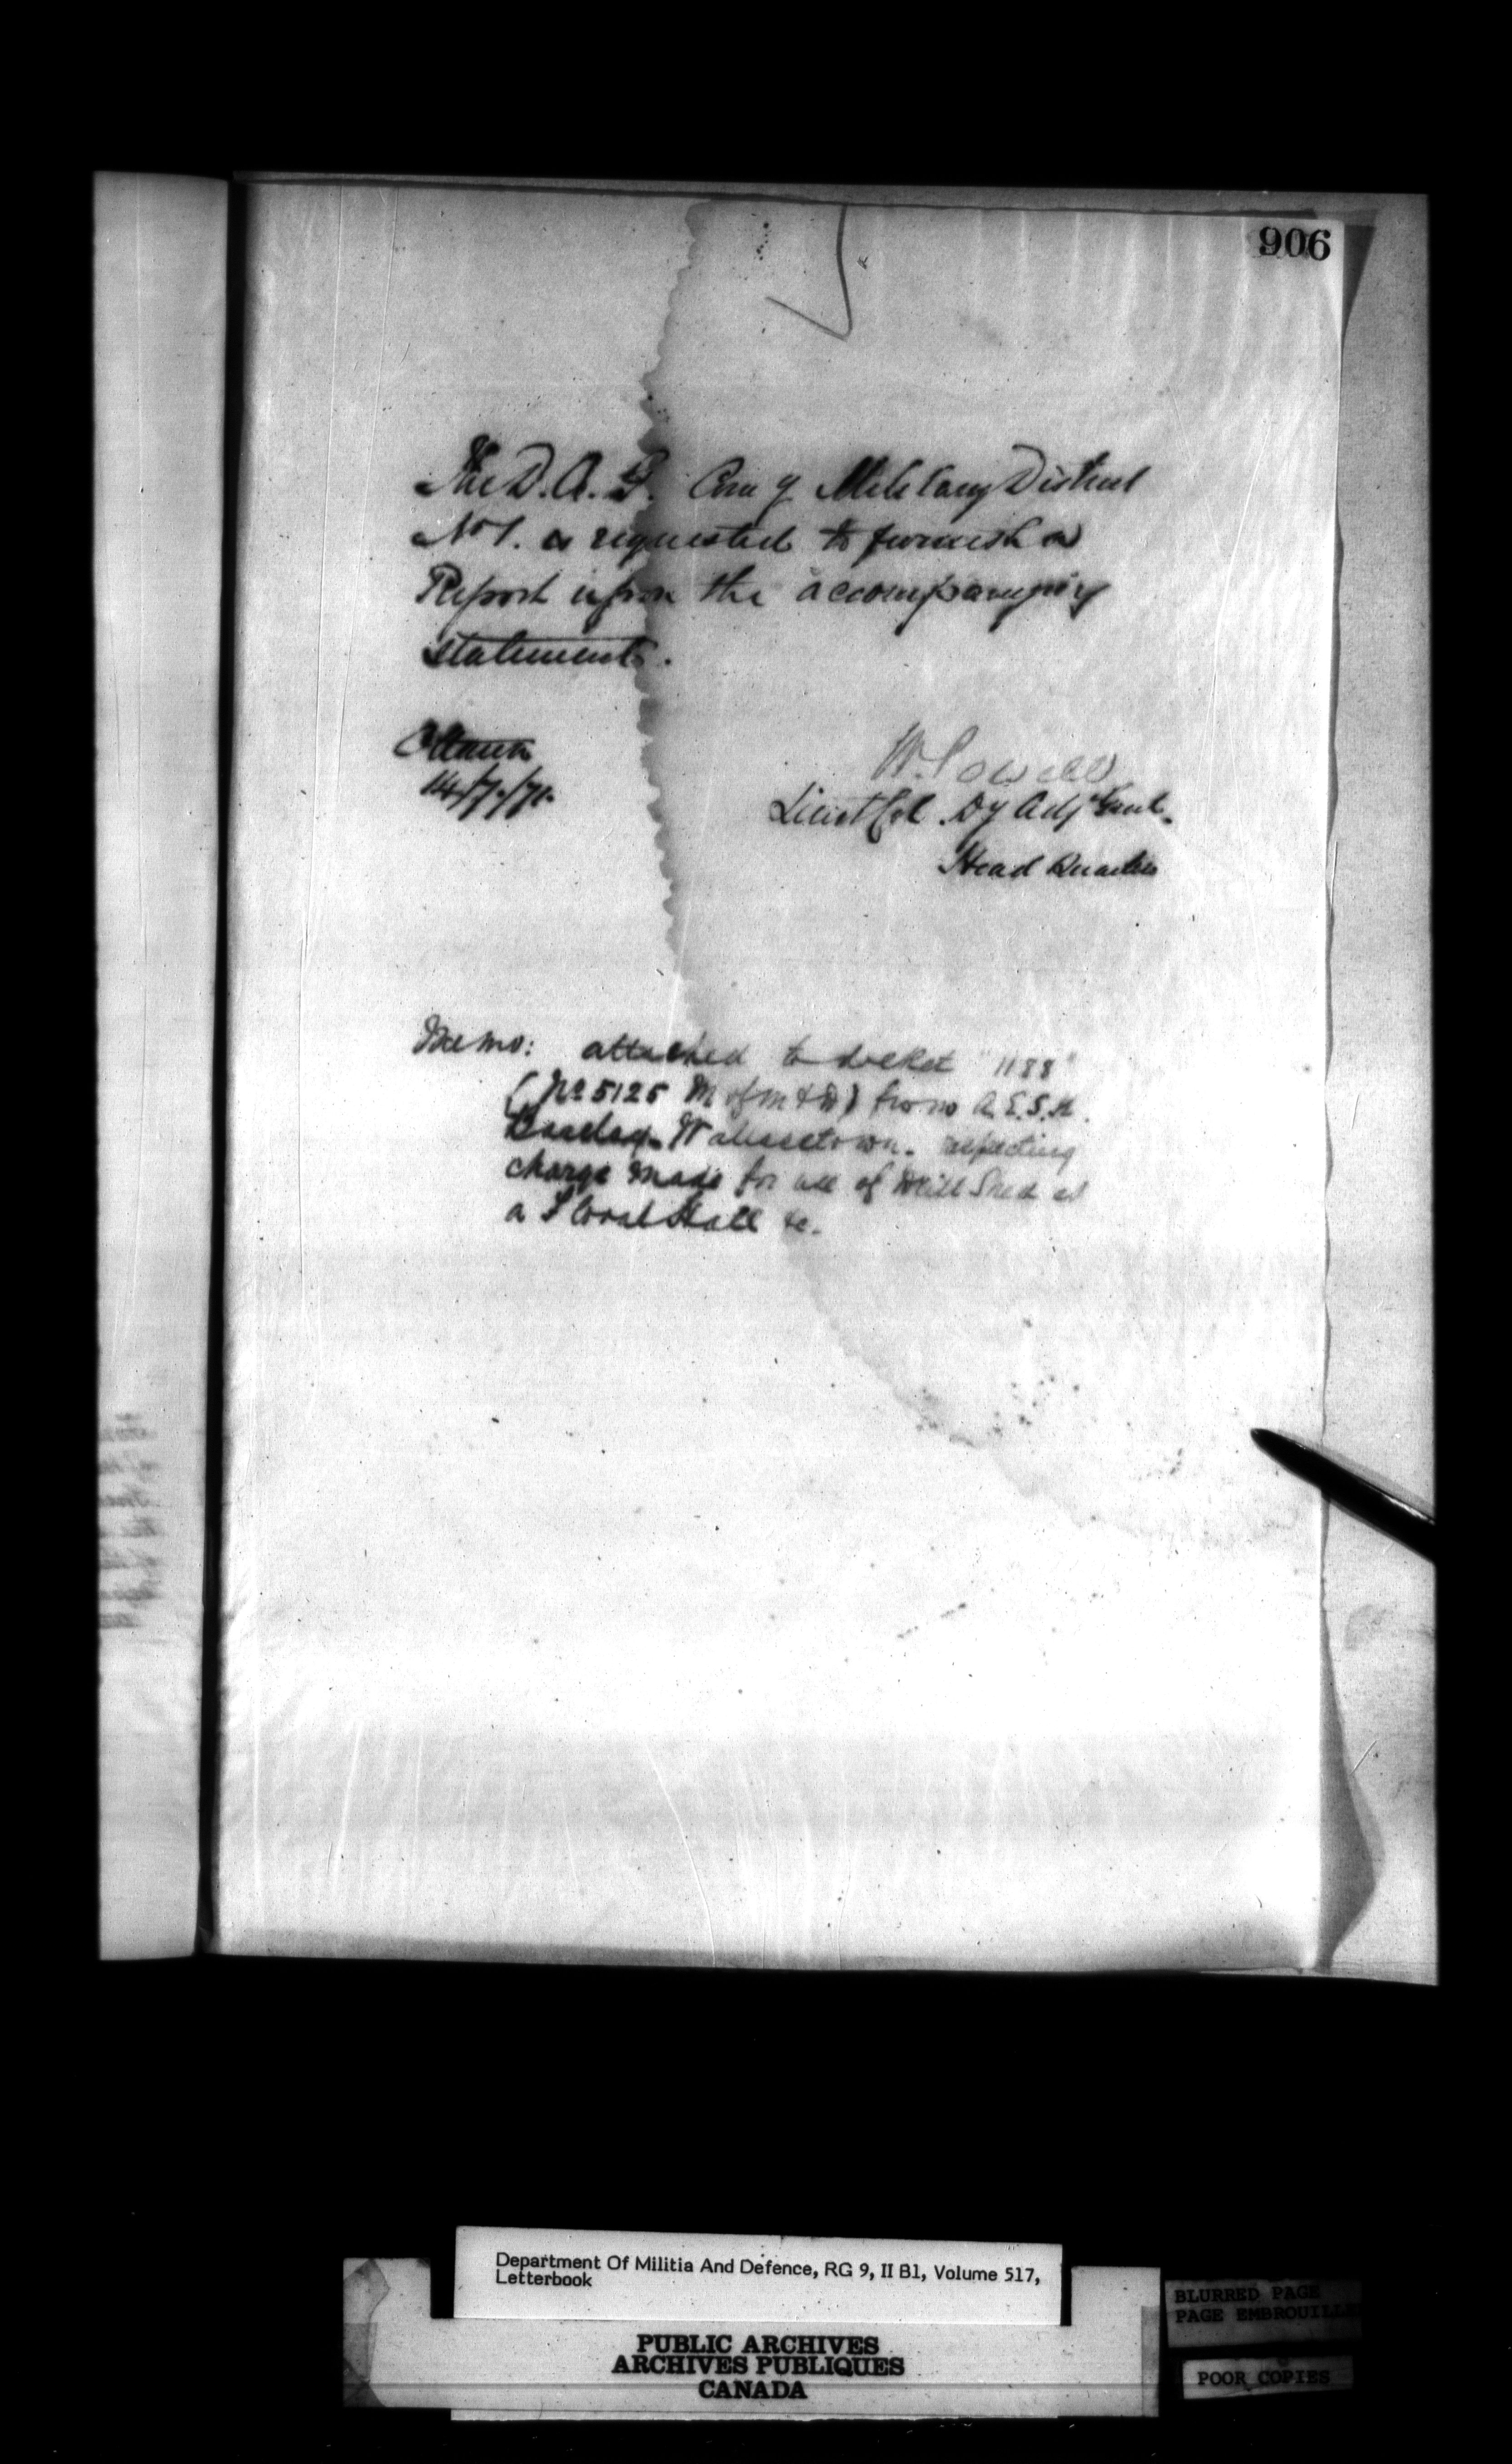 906
The D.A.G. Comg Military District
No 1. is requested to furnish a
Report upon the accompanying
statements.
Ottawa
14/7/71.
W. Powell
Lieut Col. Dy Adjt Genl.
Head Quarters
Memo: attached to docket "1188"
(No 5125 M of M & D) from A.E.S.H.
Wallacetown. respecting
charge made for use of Drill Shed as
a Floral Hall &c.
Department Of Militia And Defence, RG 9, II B1, Volume 517,
Letterbook
PUBLIC ARCHIVES
ARCHIVES PUBLIQUES
CANADA
BLURRED PAGE
PAGE EMBROUILLE
POOR COPIES